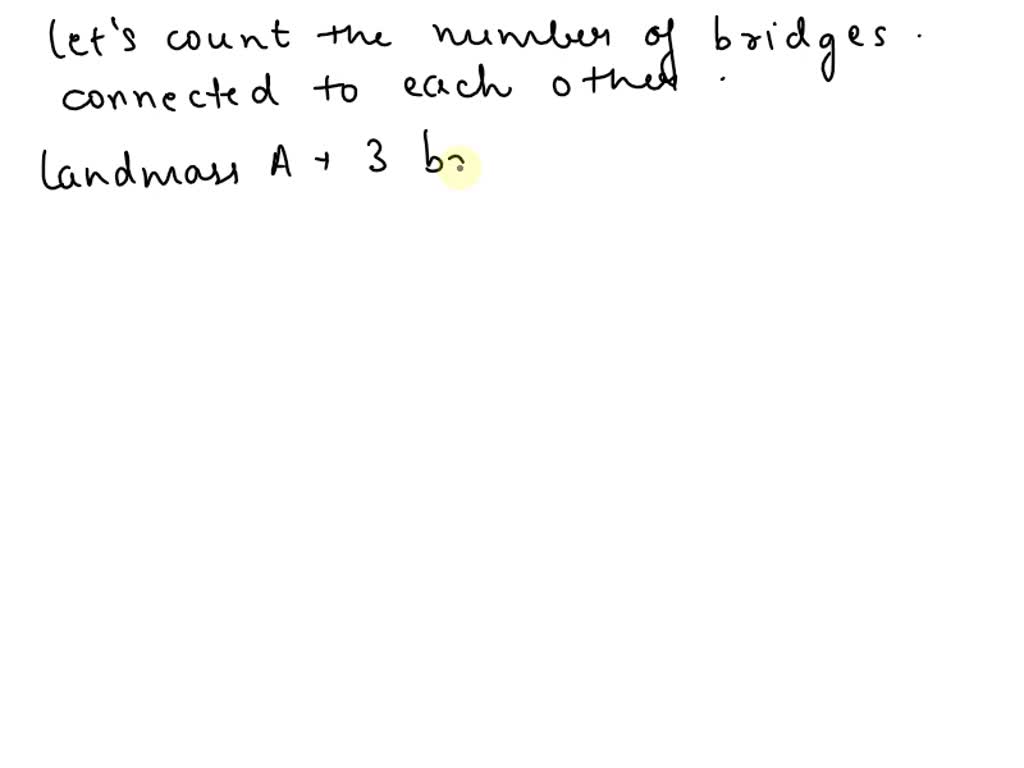 let's count the number of bridges.
connected to each other.
landmass A → 3 br